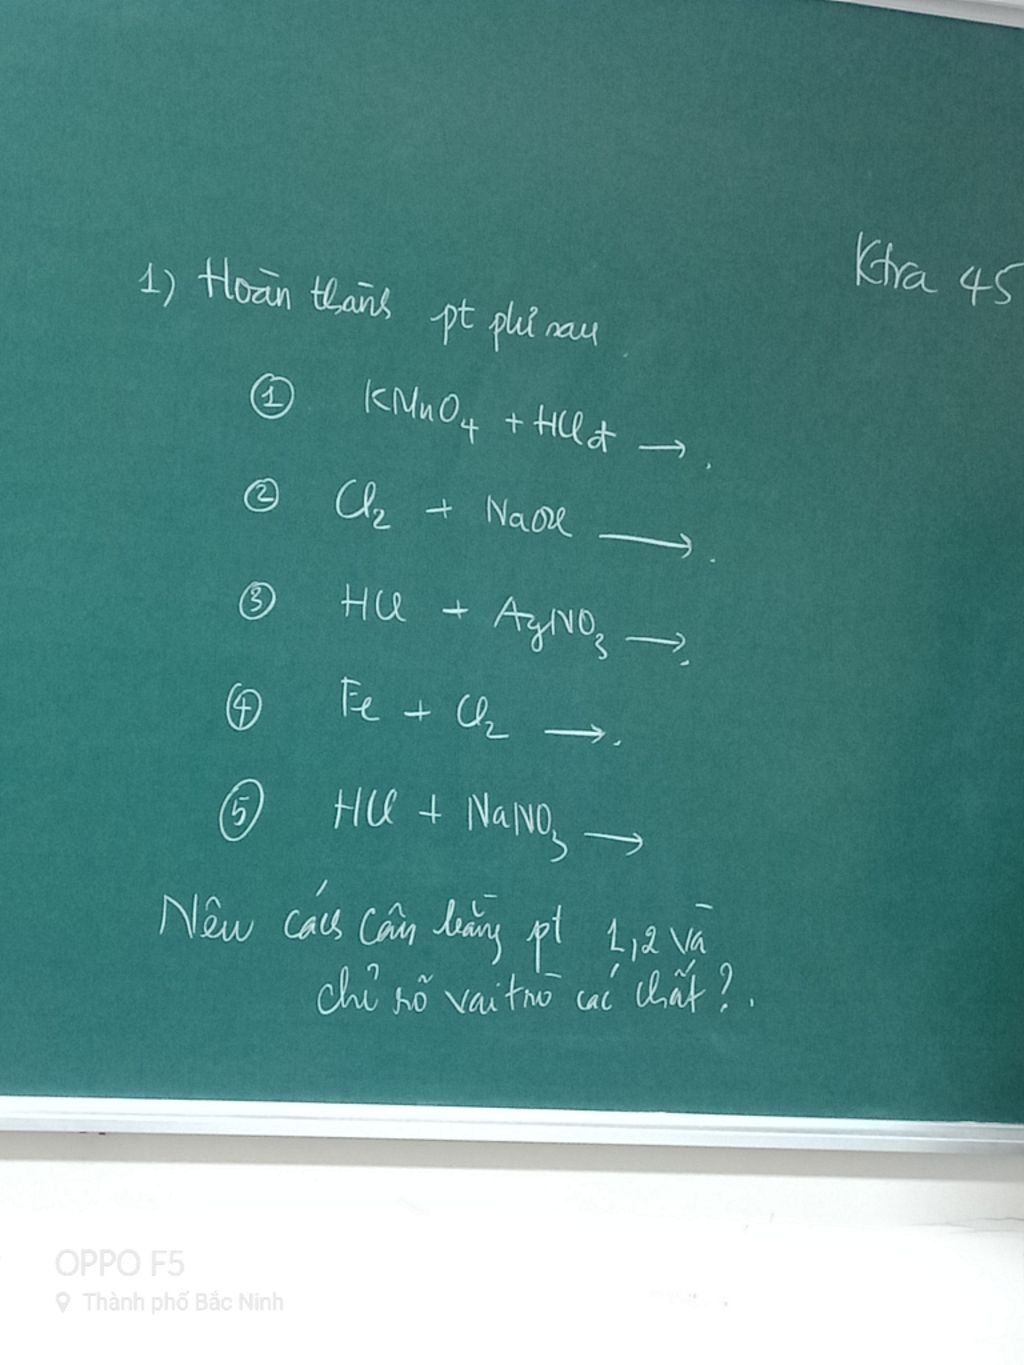 Ktra 45
1) Hoàn thành pt phứ sau
① KMnO₄ + HCl đ →.
② Cl₂ + NaOH →.
③ HCl + AgNO₃ →.
④ Fe + Cl₂ →.
⑤ HCl + NaNO₃ →
Nêu cách cân bằng pt 1,2 và
chỉ rõ vai trò các chất?.
OPPO F5
Thành phố Bắc Ninh